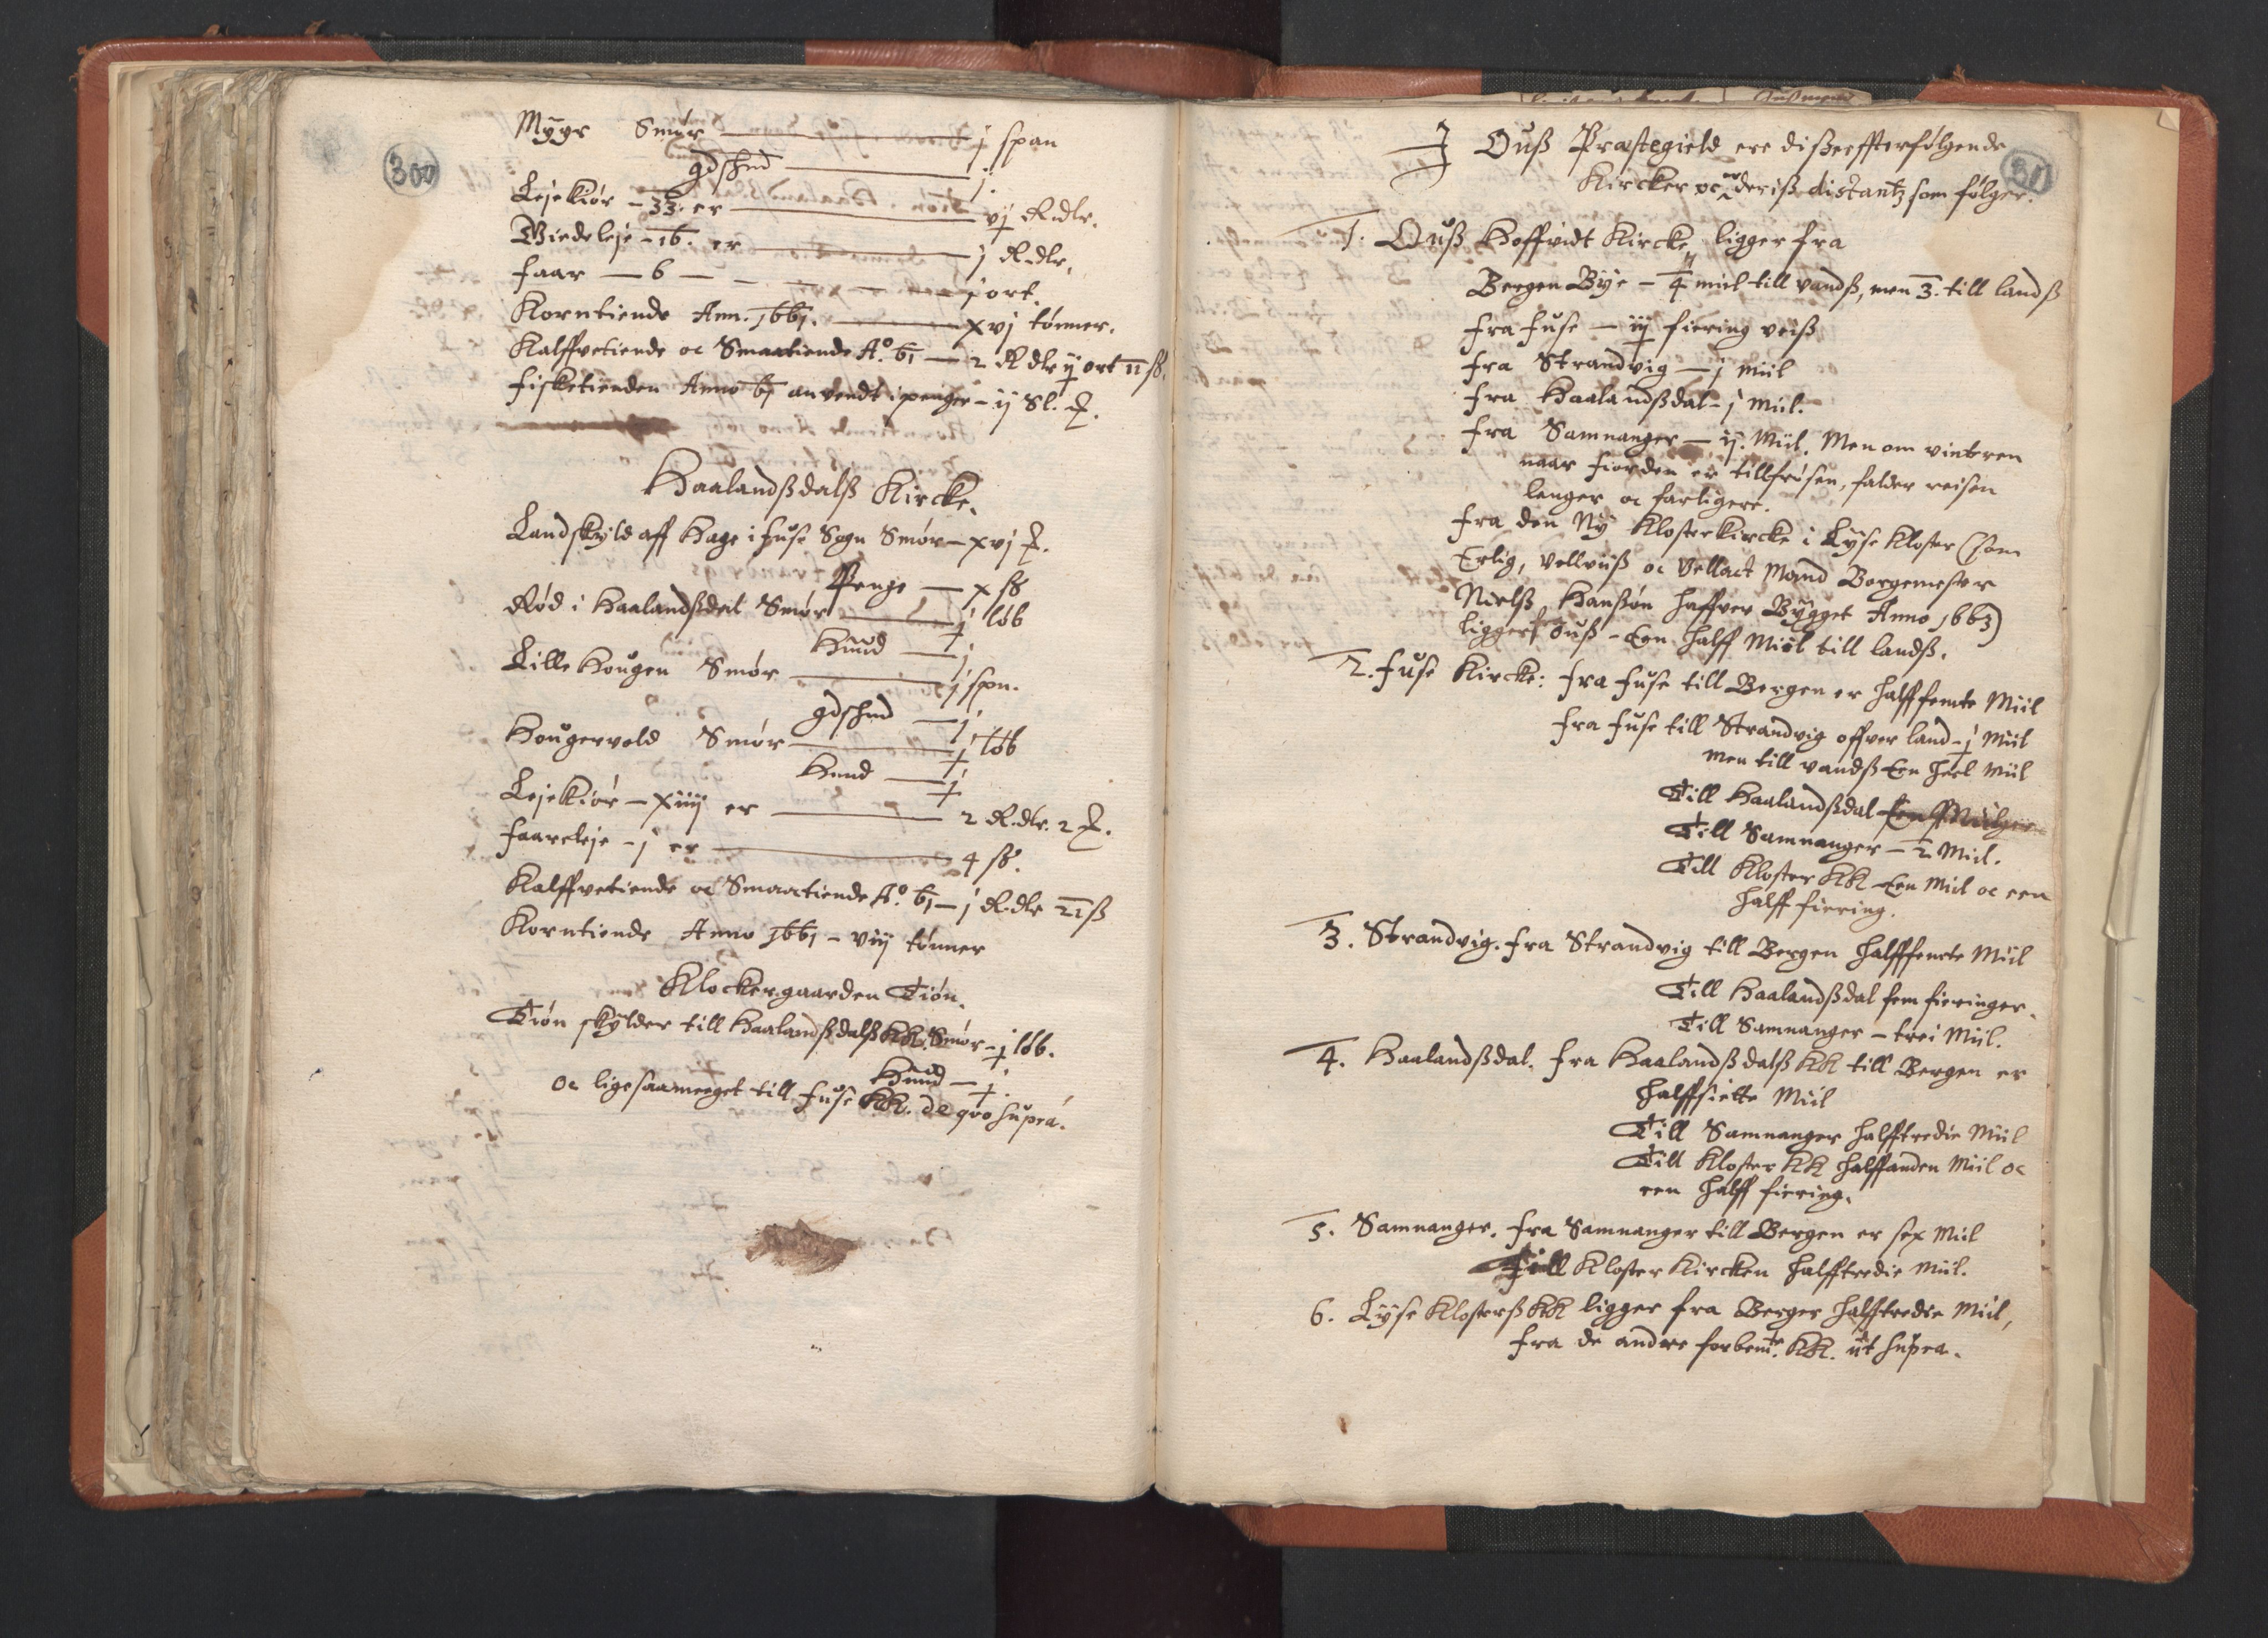 300
Mÿgr Smør — j span
gdshud — j.
Lejekiør – 33. er — vj R.dlr.
Biedeleje – 16. er — j R.dlr.
faar — 6 — j ort.
Korntiende Ann. 1661. — xvj tønner.
Kalffvetiende oc Smaatiende Aº. 61 — 2 R.dlr ij ort 11 ß.
fisketienden Anno 61 anvendt i penger – ij Sl. ₰.
Haalandßdalß Kircke.
Landskyld aff Hage i fuse Sogn Smør – xvj ₰.
Penge — x ß
Rød i Haalandßdal Smør — j løb
Huud — j
Lille Hougen Smør — j spn.
gdshud — j
Hougervold Smør — j løb
Huud — j
Lejekiør – xiiij er — 2 R.dlr. 2 ₰.
faareleje – j er — 4 ß.
Kalffvetiende oc Smaatiende Aº. 61 – j R.dlr 21 ß
Korntiende Anno 1661 – viij tønner
Klockergaarden Tiøn.
Tiøn skylder till Haalandßdalß KK. Smør – j løb.
Huud – j.
oc ligesaameeget till fuse KK. de qvo supra.
301
J Ouß Præstegield ere dißeeffterfølgende
Kircker oc er deriß distantz som følger.
1. Ouß Hoffvidt Kircke, ligger fra
Bergen Bÿe – 4 miil till vandß, men 3. till landß
fra fuse — iij fiering veiß
fra Strandvig — j Miil
fra Haalandßdal – j Miil.
fra Samnanger — ij. Miil. Men om vinteren
naar fiorden er tillfrøsen, falder reisen
lenger oc farligere.
fra den Nÿ Klosterkircke i Lÿse Kloster (som
Erlig, Vellviiß oc Vellact Mand Borgemester
Nielß Hanßøn haffver Bygget Anno 1663)
ligger Ouß – Een halff Miil till landß.
2. fuse Kircke: fra fuse till Bergen er halfffemte Miil
fra fuse till Strandvig offver land – j Miil
men till vandß Een heel Miil
Till Haalandßdal
Till Samnanger – 2 Miil.
Till Kloster KK Een Miil oc een
halff fiering.
3. Strandvig. fra Strandvig till Bergen halfffemte Miil
Till Haalandßdal fem fieringer.
Till Samnanger – trei Miil.
4. Haalandßdal. fra Haalandßdalß KK till Bergen er
halffsiette Miil
Till Samnanger halfftredie Miil
Till Kloster KK halffanden Miil oc
een halff fiering.
5. Samnanger. fra Samnanger till Bergen er sex Miil
Till Kloster Kircken halfftredie Miil.
6. Lÿse Klosterß KK ligger fra Berger halfftredie Miil,
fra de andre forbemte. KK. ut supra.